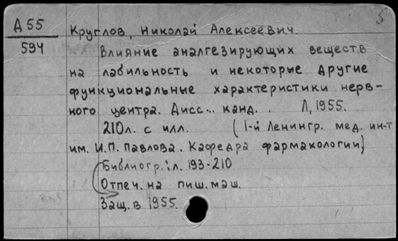 Д 55
594
Круглов, Николай Алексеевич.
Влияние аналгезирующих веществ
на лабильность и некоторые другие
функциональные характеристики нерв-
ного центра. Дисс... канд. . Л, 1955.
210л. с илл. (1-й Ленингр. мед. ин-т
им. И.П. Павлова. Кафедра фармакологии)
Библиогр.: л. 193-210
Отпеч. на пиш. маш.
Защ. в 1955.